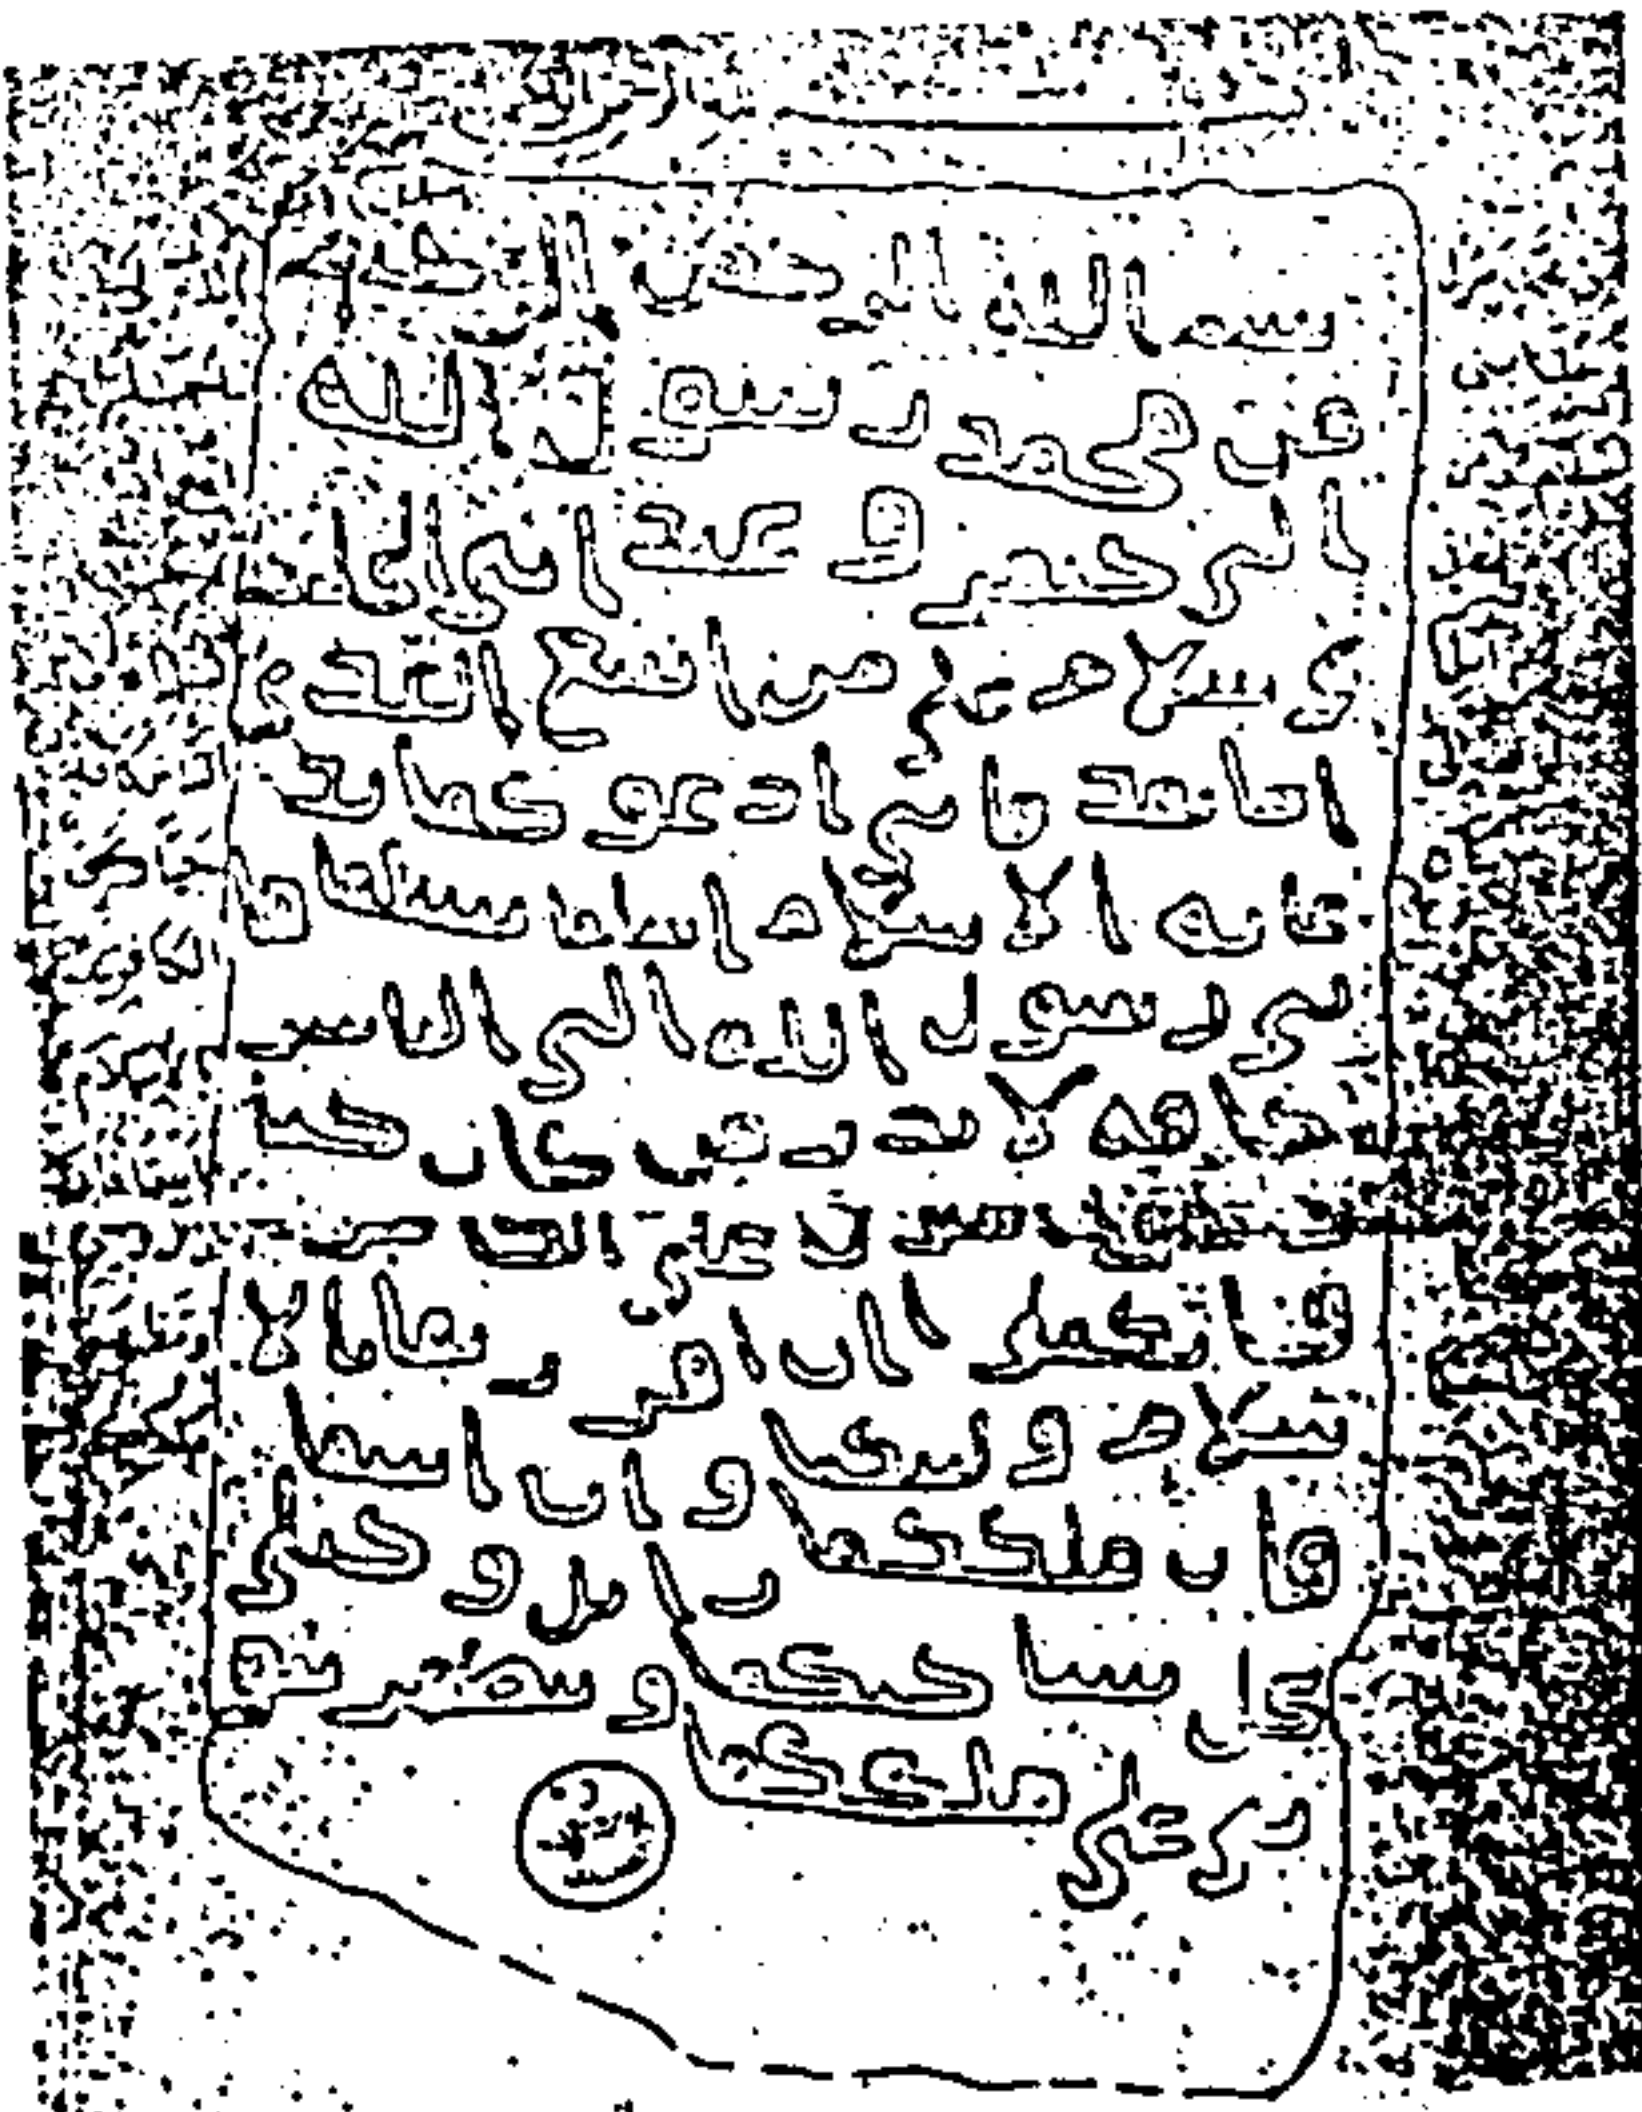 بسم الله الرحمن الرحيم
من محمد رسول الله
الى جيفر و عبد ابنى الجلند
ى سلام على من اتبع الهدى
اما بعد فانى ادعوكما بد
عاية الاسلام اسلما تسلما فا
نى رسول الله الى الناس
كافة لانذر من كان حيا
ويحق القول على الكافرين
فانكما ان اقررتما بالا
سلام وليتكما وان ابيتما
فان ملككما زايل وخيلى
تحل بساحتكما وتظهر نبو
تى على ملككما